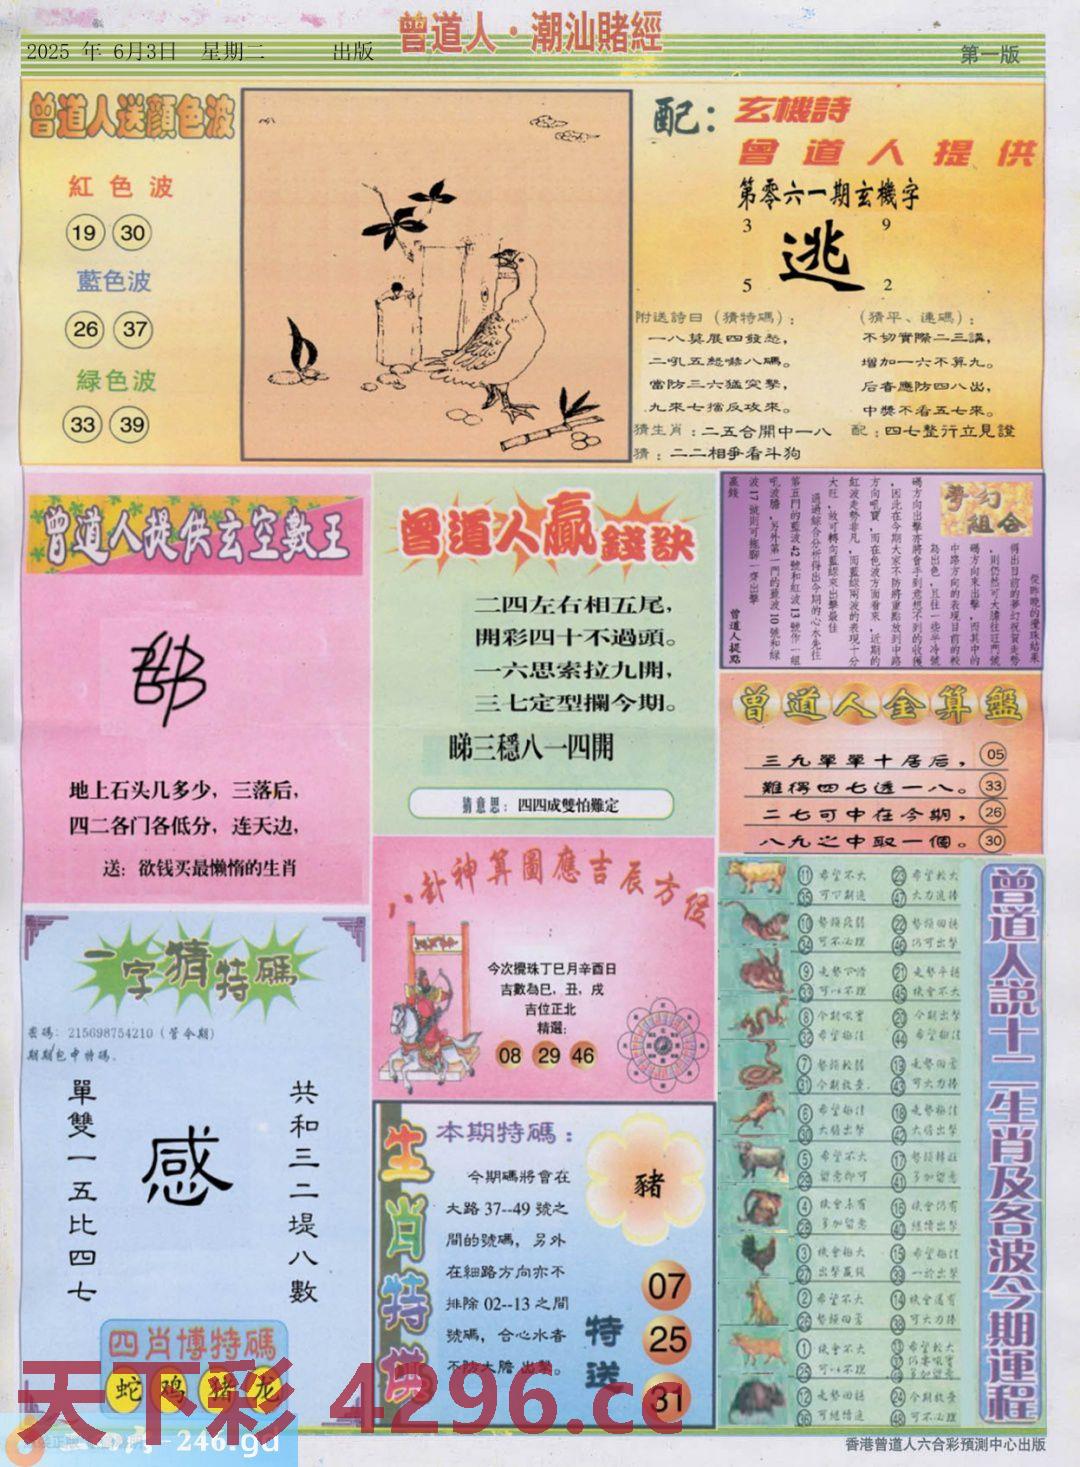 曾道人·潮汕賭經
2025 年 6月3日 星期二 出版
第一版
曾道人送顏色波
紅色波
19 30
藍色波
26 37
緑色波
33 39
配：玄機詩
曾道人提供
第零六一期玄機字
3 9
逃
5 2
附送詩日（猜特碼）：
一八莫展四發愁，
二吼五怒嚇八碼。
當防三六猛突擊，
九來七擋反攻來。
（猜平、連碼）：
不切實際二三講，
增加一六不算九。
后者應防四八出，
中獎不看五七來。
猜生肖：二五合開中一八 配：四七整行立見證
猜：二二相爭看斗狗
曾道人提供玄空數王
地上石头几多少，三落后，
四二各门各低分，连天边，
送：欲钱买最懒惰的生肖
曾道人贏錢訣
二四左右相五尾，
開彩四十不過頭。
一六思索拉九開，
三七定型攔今期。
睇三穩八一四開
猜意思：四四成雙怕難定
夢幻組合
從昨晚的攪珠結果
得出目前的夢幻祝賀走勢
，則仍然可大膽往旺門號
碼方向來出擊，而其中的
中路方向的表現目前的較
為出色，且往一些半冷號
碼方向出擊亦將會手到意想不到的收獲
，因此在今期大家不防將重點放到中路
方向吼寶，而在色波方面看來，近期的
紅波走勢非凡，而藍緑兩波的表現十分
大旺，故可轉向藍緑來出擊最佳
通過綜合分析得出今期的心水先往
第五門的藍波42號和紅波13號作一組
吼波膽，另外第一門的藍波10號和緑
波17號則可拖腳一齊出擊
贏錢
曾道人提點
曾道人金算盤
三九單單十居后， 05
難得四七透一八。 33
二七可中在今期， 26
八九之中取一個。 30
一字猜特碼
密碼：215698754210（管今期）
期期包中特碼．
單雙一五比四七
感
共和三二堤八數
四肖博特碼
蛇 鸡 猪 龙
八卦神算圖應吉辰方位
今次攪珠丁巳月辛酉日
吉數為巳，丑，戌
吉位正北
精選：
08 29 46
生肖特供
本期特碼：
今期碼將會在
大路 37--49 號之
間的號碼，另外
在細路方向亦不
排除 02--13 之間
號碼，合心水者
不防大膽 出擊。
豬
特送
07
25
31
曾道人説十二生肖及各波今期運程
11 希望不大 23 希望較大
35 可下期進 47 大力進捧
10 勢頭疲弱 22 勢頭回揚
34 可不必理 46 仍可出擊
9 走勢下滑 21 走勢平穩
33 可以不理 45 機會不大
8 今期吼寶 20 今期出擊
32 希望極佳 44 希望極佳
7 勢頭較弱 19 走勢回套
31 今期放棄． 43 可大力捧
6 希望極佳 18 走勢極佳
30 大膽出擊 42 大膽出擊
5 希望不大 17 勢頭轉旺
29 留意即可 41 多加留意
4 機會未有 16 機會仍有
28 多加留意 40 繼續出擊
3 機會極大 15 希望極佳
27 出擊贏錢 39 一於出擊
2 希望不大 14 機會還有
26 勢頭回套 38 可大力捧
1 機會不大
25 可以不理
12 走勢回揚 24 今期放棄
36 可繼續追 48 可不必理
天下彩 4296.cc
246.gd
香港曾道人六合彩預測中心出版